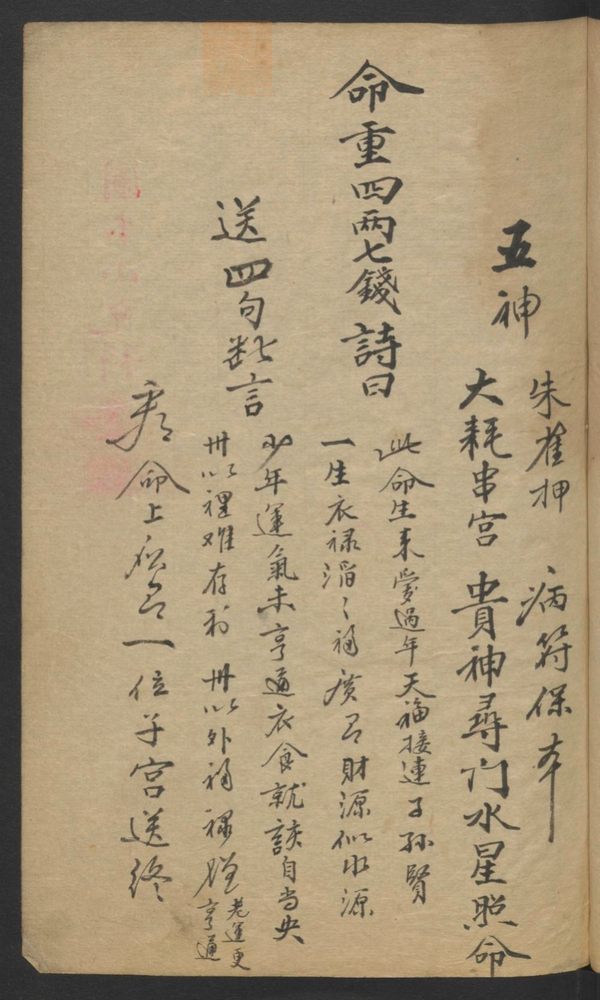 五神
朱雀押 病符保本
大耗串宮 貴神尋门水星照命
命重四两七錢詩曰
此命生来愛過年天福接連子孫賢
一生衣禄滔々福广召財源似水源
送四句断言
少年運氣未亨通衣食就該自当央
卅以裡难存利 卅以外福禄
老運更亨通
命上 一位子宮送終